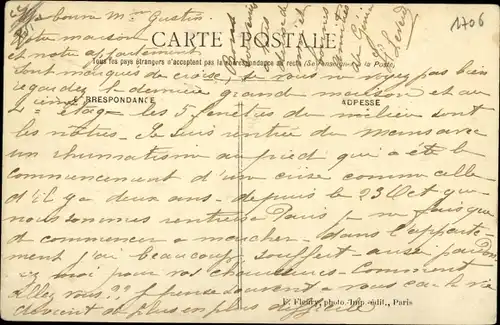 1706
Ma bonne Mme Gustin
Notre maison
CARTE POSTALE
et notre appartement
Tous les pays étrangers n'acceptent pas la correspondance au recto (Se renseigner à la Poste)
sont marqués de croix si vous ne voyez pas bien
regardez la dernière grande maison et au
RRESPONDANCE
ADRESSE
2ième étage les 5 fenêtres du milieu sont
les nôtres. Je suis rentrée du Mans avec
un rhumatisme au pied qui a été le
commencement d'une crise comme celle
d'il y a deux ans depuis le 23 Oct que
nous sommes rentrés à Paris je ne fais que
de commencer à marcher dans l'apparte-
ment j'ai beaucoup souffert aussi pardon
ez moi pour vos chaussures. Comment
allez vous ?? Je pense souvent à vous car la vie
devient de plus en plus difficile
F. Fleury, photo. Imp. édit., Paris